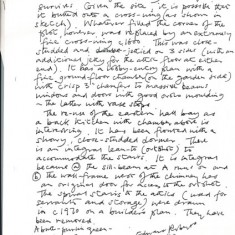 survives. Given the site, it is possible that
it butted onto a cross-wing (as shown in
sketch). Whatever filled the corner of the
plot however was replaced by an extremely
fine cross-wing c.1600. This was close-
studded and jettied on 3 sides (with an
additional jetty for the attic-floor at either
end). It has a lobby-entry plan with a
fine ground-floor chamber (on the garden side)
with crisp 3" chamfer to massive beams
windows and doors with good ovolo moulding
- the latter with vase stops.
The re-use of the eastern half bay as
a back kitchen with chamber above is
interesting. It has been fronted with a
showy, close-studded dormer. There
is an integral lean-to (outshot) to
accommodate the stairs. It is integral
because (a) the sill-beam at a runs on and
(b) the waste-frame west of the chimney has
an original door for access to the outshot.
The spiral stairs to the attics (used for
servants and storage) were drawn
in c 1970 on a builder's plan. They have
been removed.
A butt-purlin green-